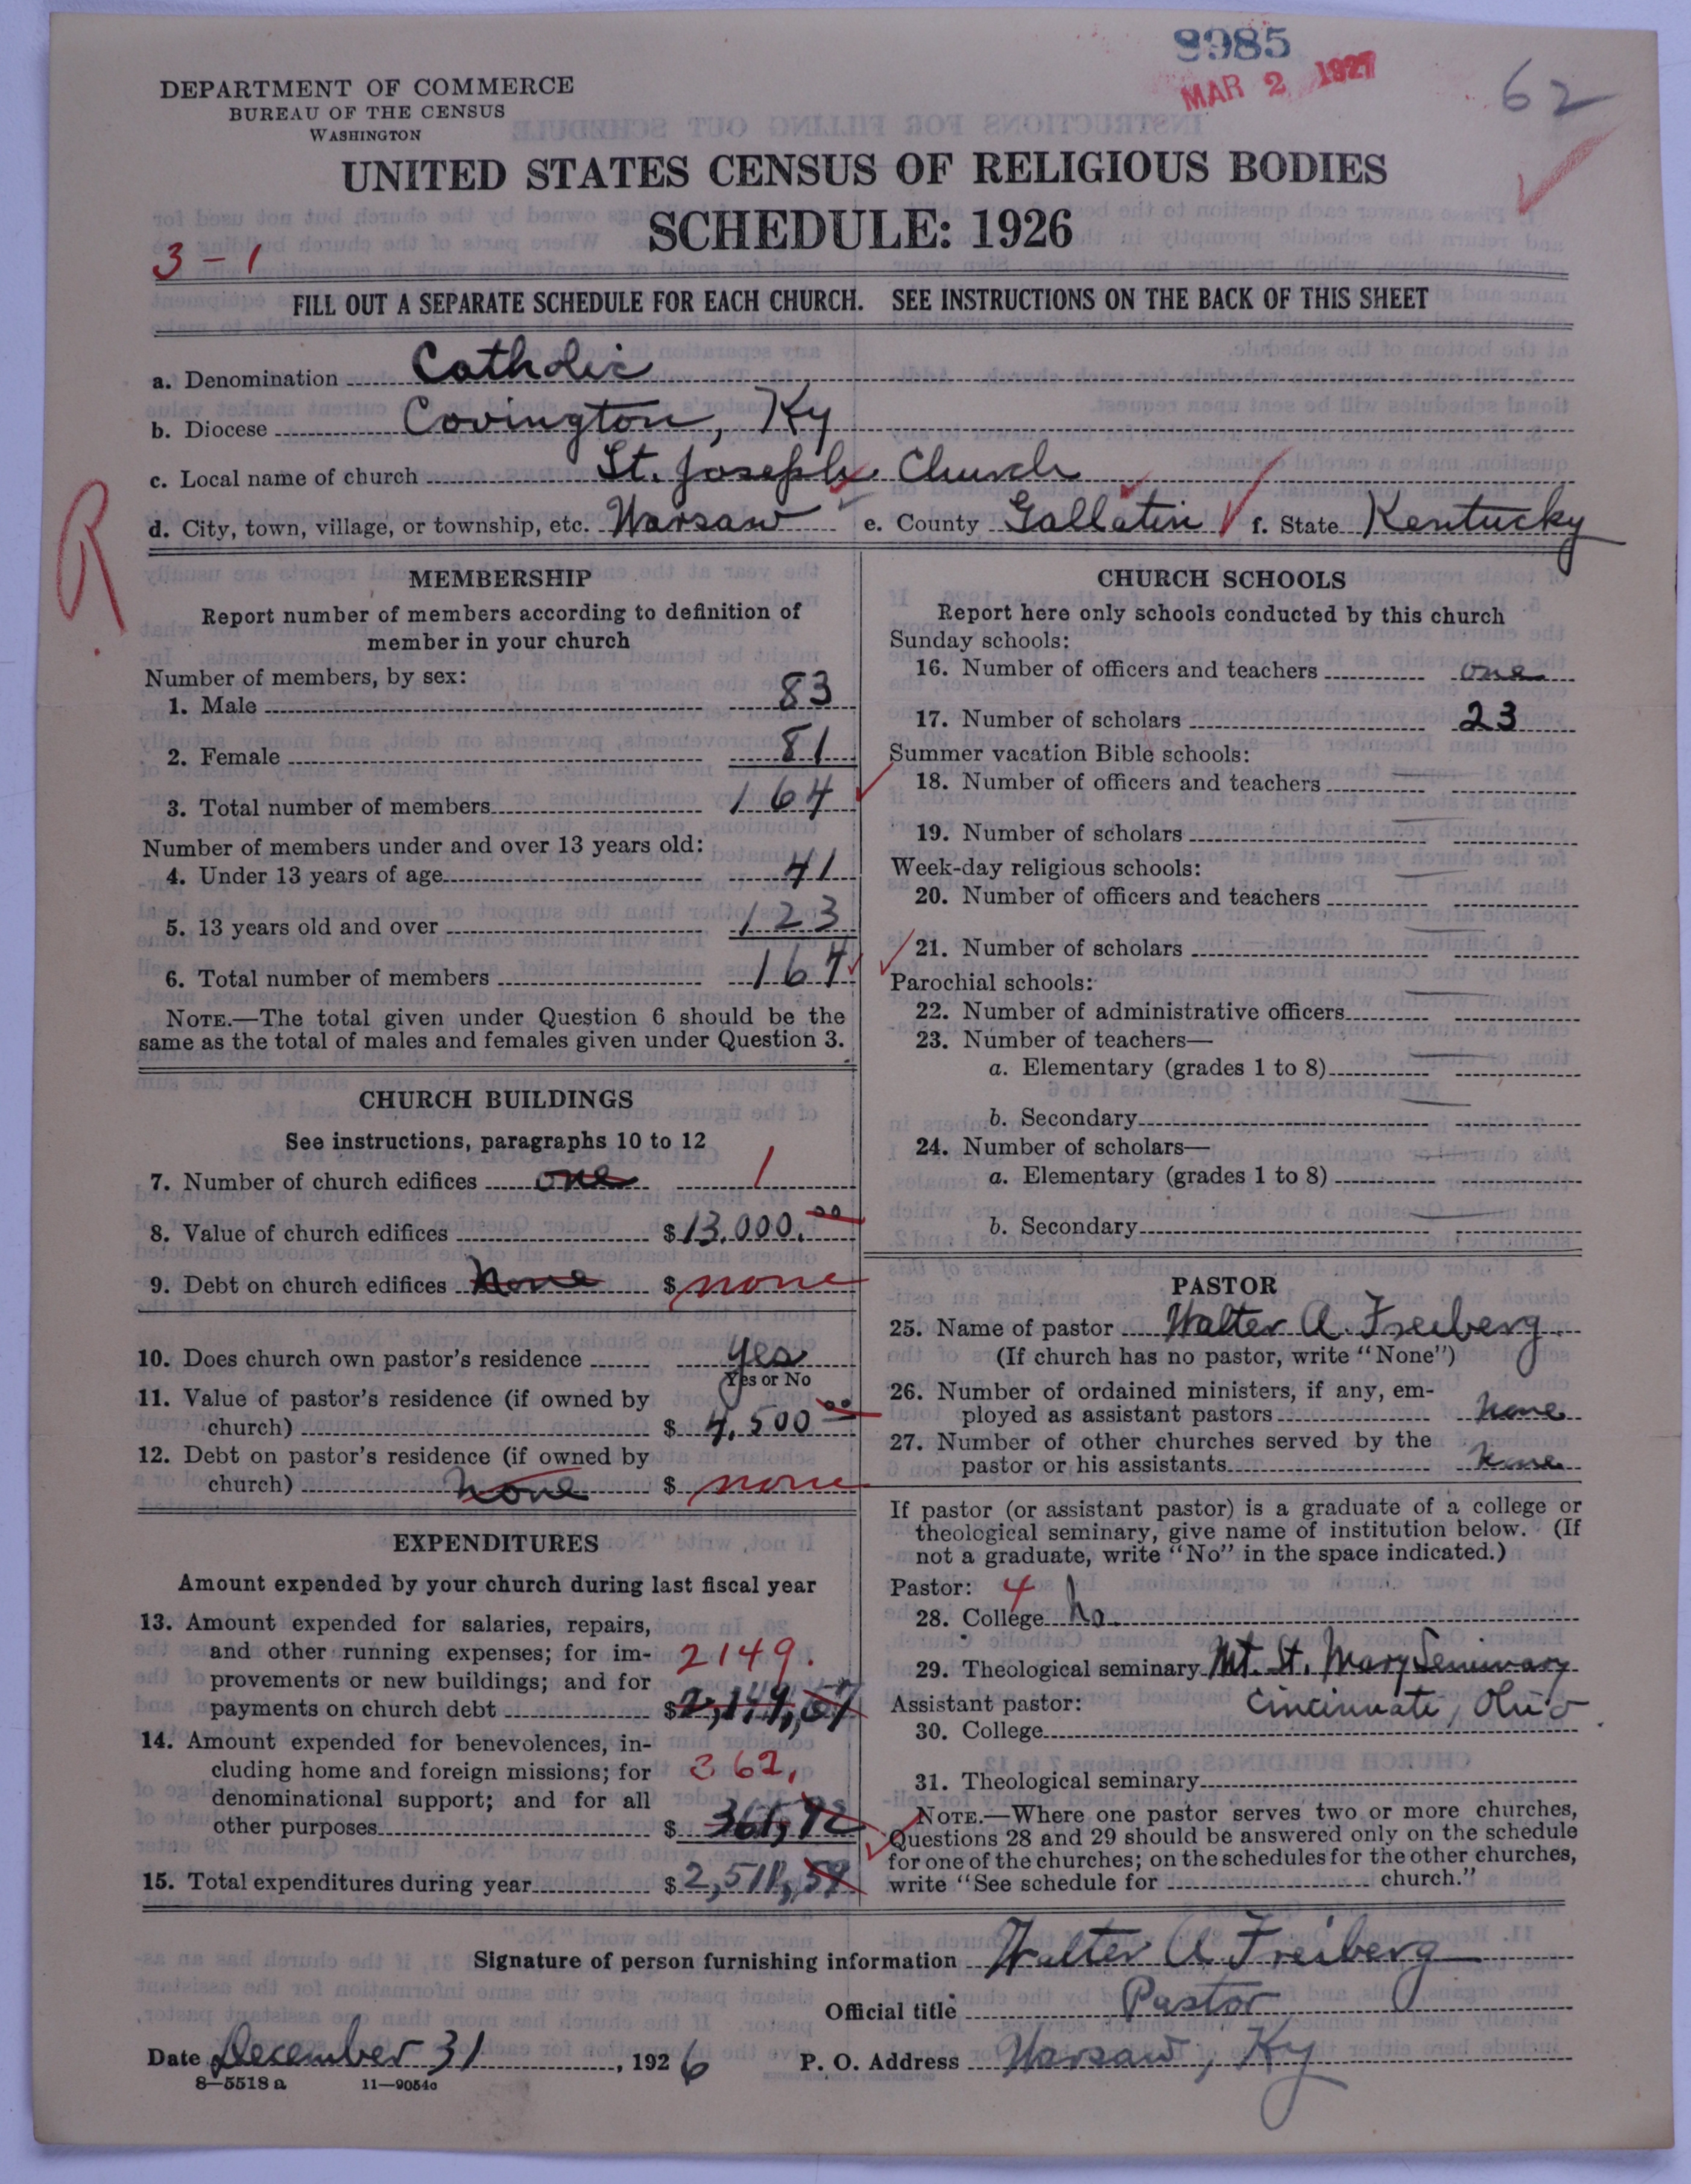 8985
MAR 2 1927
62
DEPARTMENT OF COMMERCE
BUREAU OF THE CENSUS
WASHINGTON
UNITED STATES CENSUS OF RELIGIOUS BODIES
SCHEDULE: 1926
3-1
FILL OUT A SEPARATE SCHEDULE FOR EACH CHURCH. SEE INSTRUCTIONS ON THE BACK OF THIS SHEET
a. Denomination Catholic
b. Diocese Covington, Ky
c. Local name of church St. Joseph Church
d. City, town, village, or township, etc. Warsaw e. County Gallatin f. State Kentucky
R.
MEMBERSHIP
Report number of members according to definition of
member in your church
Number of members, by sex:
1. Male 83
2. Female 81
3. Total number of members 164
Number of members under and over 13 years old:
4. Under 13 years of age 41
5. 13 years old and over 123
6. Total number of members 164
NOTE.—The total given under Question 6 should be the
same as the total of males and females given under Question 3.
CHURCH BUILDINGS
See instructions, paragraphs 10 to 12
7. Number of church edifices one 1
8. Value of church edifices $13,000.00
9. Debt on church edifices None $ none
10. Does church own pastor's residence Yes
Yes or No
11. Value of pastor's residence (if owned by
church) $ 4,500 00
12. Debt on pastor's residence (if owned by
church) None $ none
EXPENDITURES
Amount expended by your church during last fiscal year
13. Amount expended for salaries, repairs,
and other running expenses; for im-
provements or new buildings; and for 2149.
payments on church debt $
14. Amount expended for benevolences, in-
cluding home and foreign missions; for 362,
denominational support; and for all
other purposes $
15. Total expenditures during year $
CHURCH SCHOOLS
Report here only schools conducted by this church
Sunday schools:
16. Number of officers and teachers one
17. Number of scholars 23
Summer vacation Bible schools:
18. Number of officers and teachers
19. Number of scholars
Week-day religious schools:
20. Number of officers and teachers
21. Number of scholars
Parochial schools:
22. Number of administrative officers
23. Number of teachers—
a. Elementary (grades 1 to 8)
b. Secondary
24. Number of scholars—
a. Elementary (grades 1 to 8)
b. Secondary
PASTOR
25. Name of pastor Walter A. Freiberg
(If church has no pastor, write "None")
26. Number of ordained ministers, if any, em-
ployed as assistant pastors None
27. Number of other churches served by the
pastor or his assistants None
If pastor (or assistant pastor) is a graduate of a college or
theological seminary, give name of institution below. (If
not a graduate, write "No" in the space indicated.)
Pastor: 4
28. College No.
29. Theological seminary Mt. St. Mary Seminary
Assistant pastor: Cincinnati, Ohio
30. College
31. Theological seminary
NOTE.—Where one pastor serves two or more churches,
Questions 28 and 29 should be answered only on the schedule
for one of the churches; on the schedules for the other churches,
write "See schedule for church."
Signature of person furnishing information Walter A Freiberg
Official title Pastor
Date December 31, 1926 P. O. Address Warsaw, Ky
8—5518 a 11—9054c